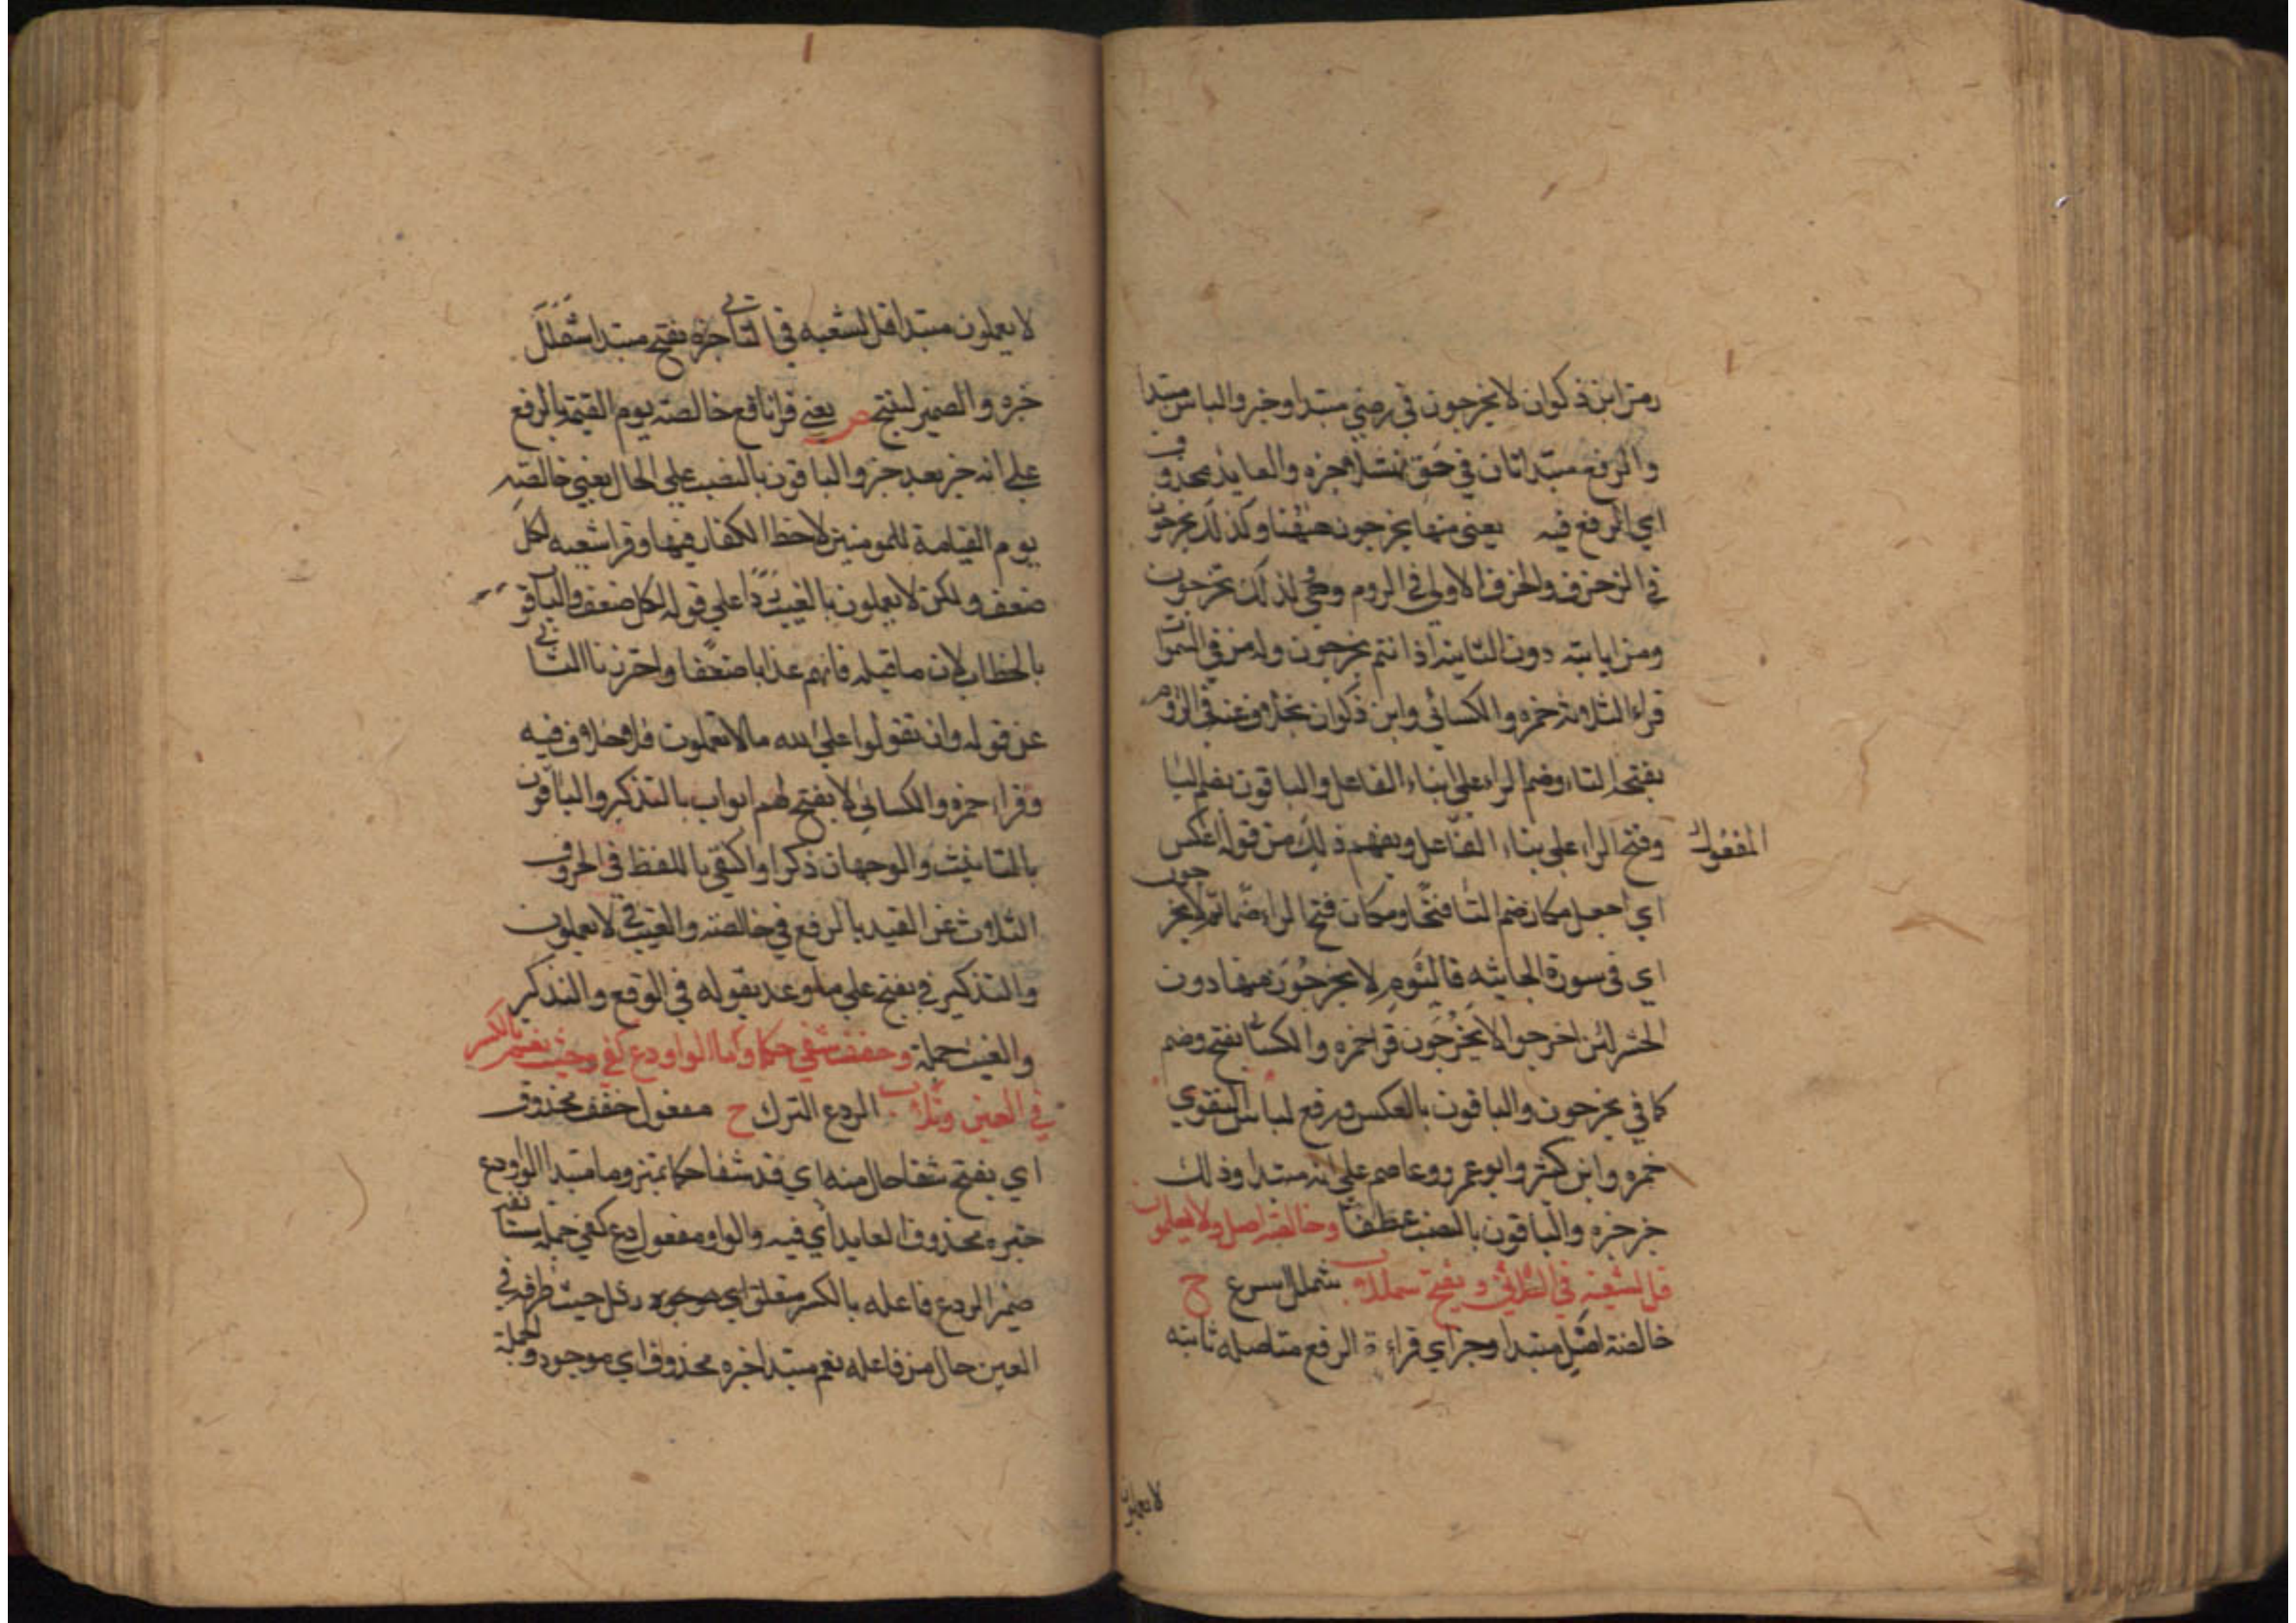 رمز ابن ذكوان لا يخرجون في رضي مبتدا وخبر والباس مبتدا
والرفع مبتدا ثان في حق نهشلا خبره والعايد محذوف
اي الرفع فيه يعني منها يخرجون ههنا وكذلك يخرجون
في الزخرف والحرف الاولي في الروم وهي لذلك تخرجون
ومن اياته دون الثانيه اذا انتم تخرجون وله من في السموات
قراء الثلاثه حمزه والكسائي وابن ذكوان بخلاف عنه في الروم
بفتح التاء وضم الراء علي بناء الفاعل والباقون بضم التا
وفتح الراء علي بناء الفاعل ويفهم ذلك من قوله اعكس
المفعول
اي اجعل مكان ضم التا فتحا ومكان فتح الراء ضما ثم لا يخرجون
اي في سورة الجاثيه فاليوم لا يخرجون منها دون
الحشر لئن اخرجوا لا يخرجون قرا حمزه والكسائي بفتح وضم
كما في يخرجون والباقون بالعكس ورفع لباس التقوي
حمزه وابن كثير وابو عمرو وعاصم علي انه مبتدا وذلك
خير خبره والباقون بالنصب عطفا وخالصة اصل ولا يعلمون
قل لشعبة في الثاني ويفتح شمللا شملل اسرع ح
خالصة اصل مبتدا وخبر اي قراءة الرفع متاصله ثابته
لا يعلمون
لا يعلمون مبتدا قل لشعبه في الثاني خبره يفتح مبتدا شمللَ
خبره والضمير ليفتح ص يعني قرا نافع خالصة يوم القيمة بالرفع
علي انه خبر بعد خبر والباقون بالنصب علي الحال يعني خالصة
يوم القيامة للمومنين لا حظ الكفار فيها وقرا شعبه لكل
ضعف ولكن لا يعلمون بالغيب ردا علي قوله لكل ضعف والباقون
بالخطاب لان ما قبله فاتهم عذابا ضعفا واحترزنا الثاني
عن قوله وان تقولوا علي الله ما لا تعلمون فلا خلاف فيه
وقراء حمزه والكسائي لا يفتح لهم ابواب بالتذكير والباقون
بالتانيث والوجهان ذكرا واكتفي باللفظ في الحروف
الثلاث عن القيد بالرفع في خالصة والغيب في لا يعلمون
والتذكير في يفتح علي ما وعد بقوله في الرفع والتذكير
والغيب جملة وخفف شفي حكما وما الواو دع كفي وحيث نعم بالكسر
في العين رتلا الودع الترك ح مفعول خفف محذوف
اي يفتح شفا حال منه اي قد شفا حكما تميز وما مبتدا الواو دع
خبره محذوف العايد اي فيه والواو مفعول دع كفي جملة مستانفة
ضمير الودع فاعله بالكسر متعلق رتل حيث ظرفه في
العين حال من فاعله نعم مبتدا خبره محذوف اي موجود والجملة